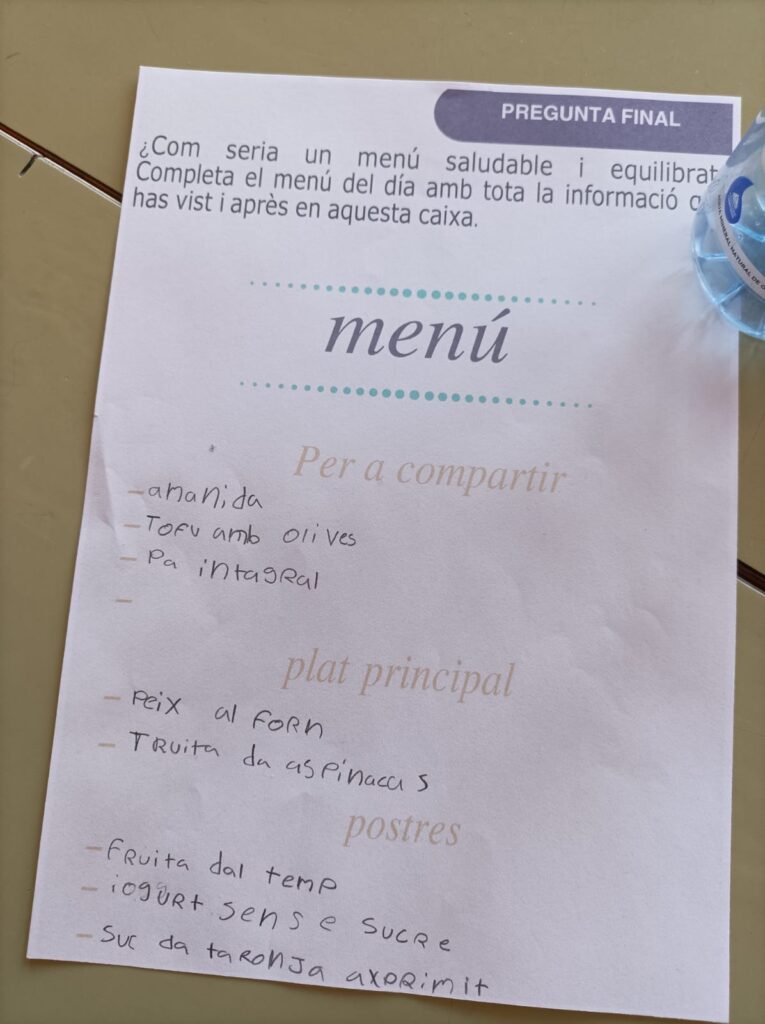 PREGUNTA FINAL
¿Com seria un menú saludable i equilibrat
Completa el menú del día amb tota la informació
has vist i après en aquesta caixa.
menú
Per a compartir
- ananida
- Tofu amb olives
- Pa intagral
-
plat principal
- Peix al forn
- Truita da aspinacas
postres
- fruita dal temp
- iogurt sense sucre
- suc da taronja axprimit